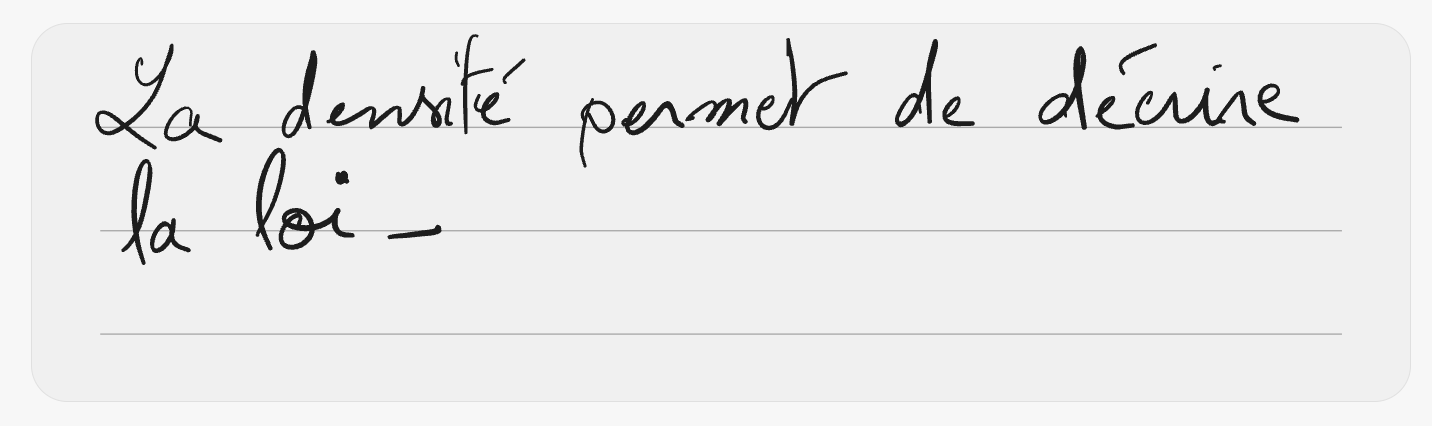 La densité permet de décrire
la loi -